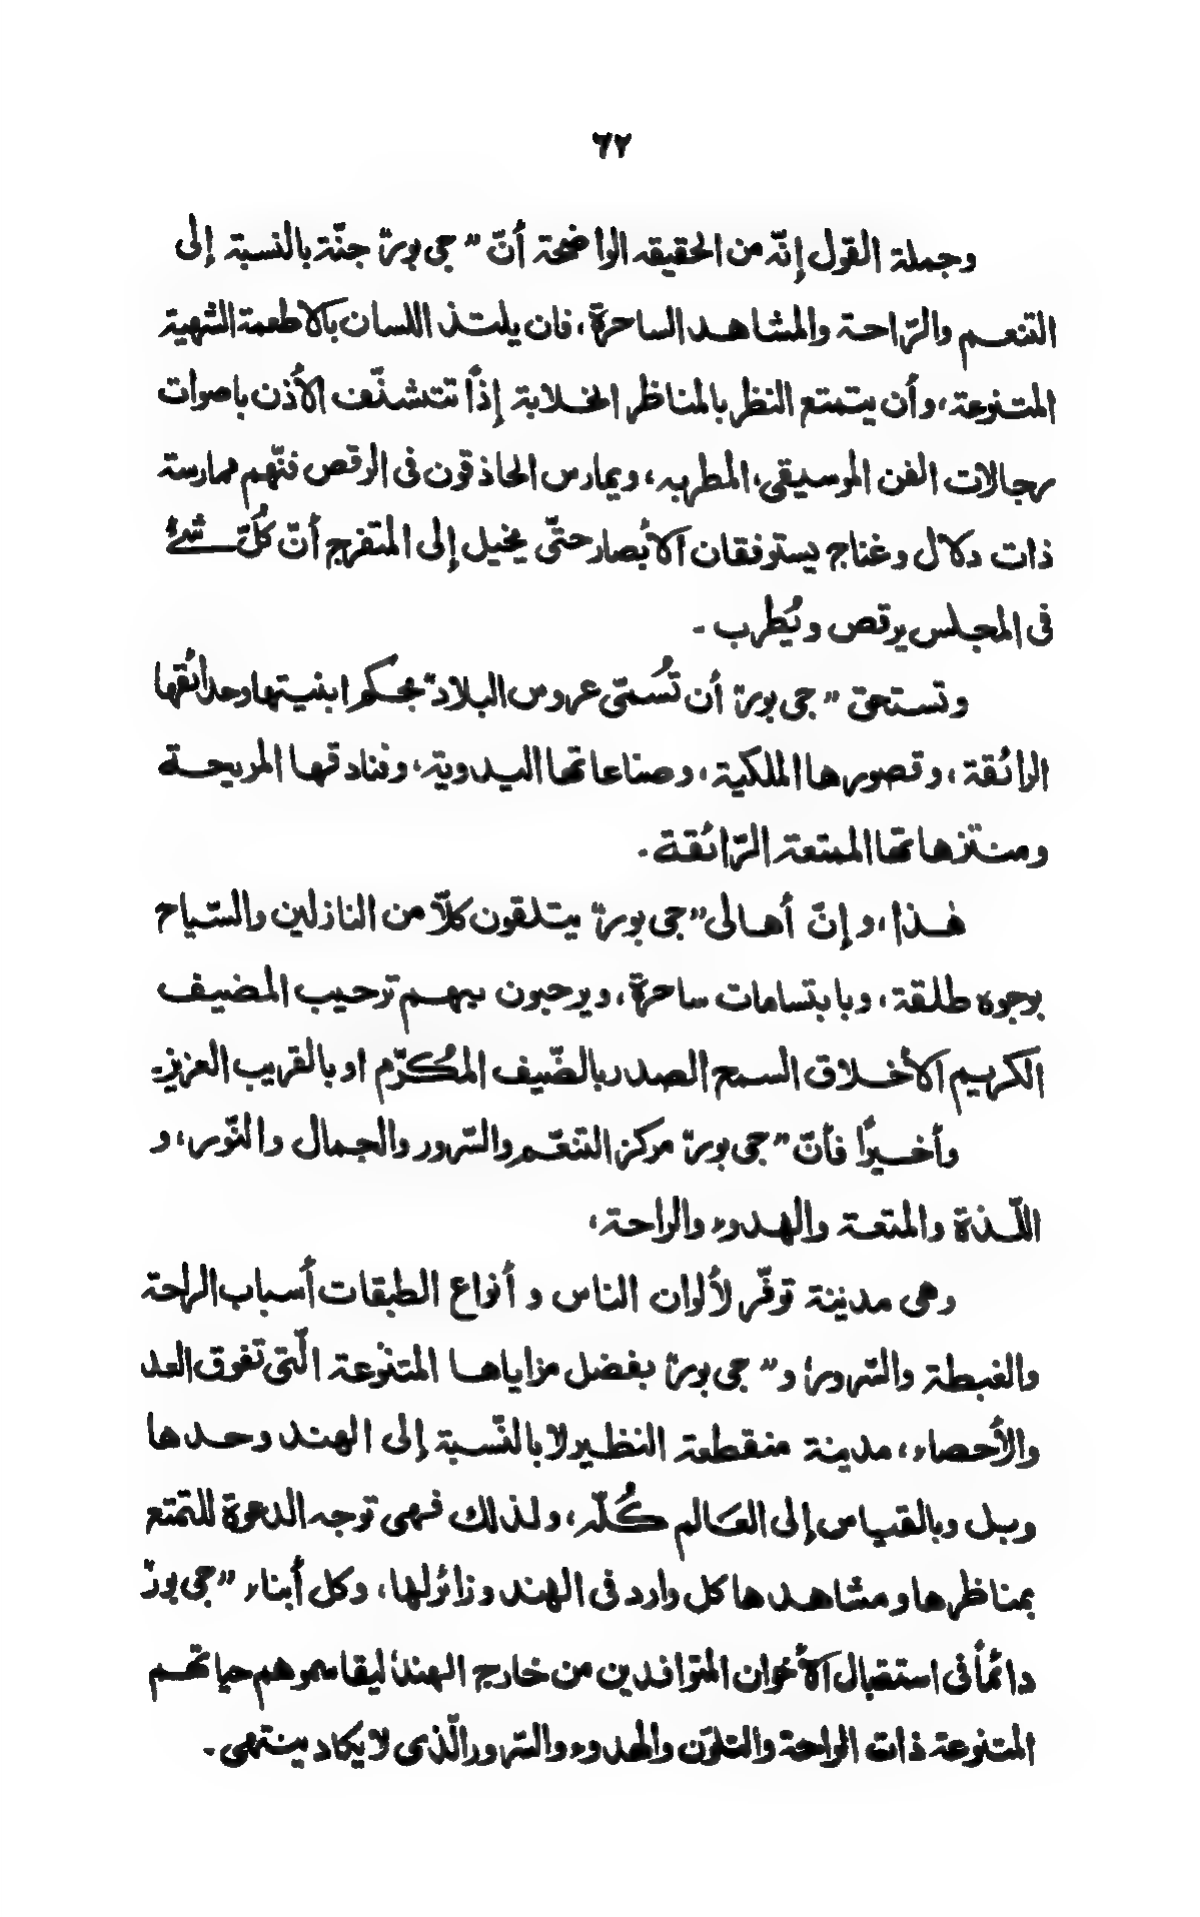 ٦٢
وجملة القول إنّه من الحقيقه الواضحة أنّ "جى بور" جنّة بالنسبة إلى
التنعم والرّاحة والمشاهد الساحرة، فان يلتذ اللسان بالاطعمة الشهية
المتنوعة، وأن يتمتع النظر بالمناظر الخلابة إذاً تتشنّف الأذن باصوات
رجالات الفن الموسيقى، المطربه، ويمارس الحاذقون فى الرقص فنّهم ممارسة
ذات دلال وغناج يستوفقان الأبصار حتّى يخيل إلى المتفرج أنّ كُلّ شئ
فى المجلس يرقص ويُطرب -
وتستحق "جى بور" أن تُسمّى عروس البلاد" بحكم ابنيتها وحدائقها
الرائقة، وقصورها الملكية، وصناعاتها اليدوية، وفنادقها المريحة
ومنتزهاتها الممتعة الرّائقة -
هٰذا، وإنّ أهالى "جى بور" يتلقون كلاّ من النازلين والسّياح
بوجوه طلقة، وبابتسامات ساحرة، ويرحبون بهم ترحيب المضيف
الكريم الأخلاق السمح الصدر بالضّيف المُكرّم او بالقريب العزيز -
وأخيرًا فأنّ "جى بور" مركز التنعّم والسّرور والجمال والنّور، و
اللّذة والمتعة والهدوء والراحة،
وهى مدينة توفّر لألوان الناس و أنواع الطبقات أسباب الراحة
والغبطة والسّرور، و" جى بور" بفضل مزاياها المتنوعة الّتى تفوق العد
والأحصاء، مدينة منقطعة النظير لا بالنّسبة إلى الهند وحدها
وبل وبالقياس إلى العَالم كُلّه، ولذلك فهى توجه الدعوة للتمتع
بمناظرها ومشاهدها كل وارد فى الهند وزائرلها، وكل أبناء "جى بور"
دائماً فى استقبال الأخوان المتوافدين من خارج الهند ليقاسموهم حياتهم
المتنوعة ذات الراحة والتلوّن والهدوء والسّرور الّذى لا يكاد ينتهى -